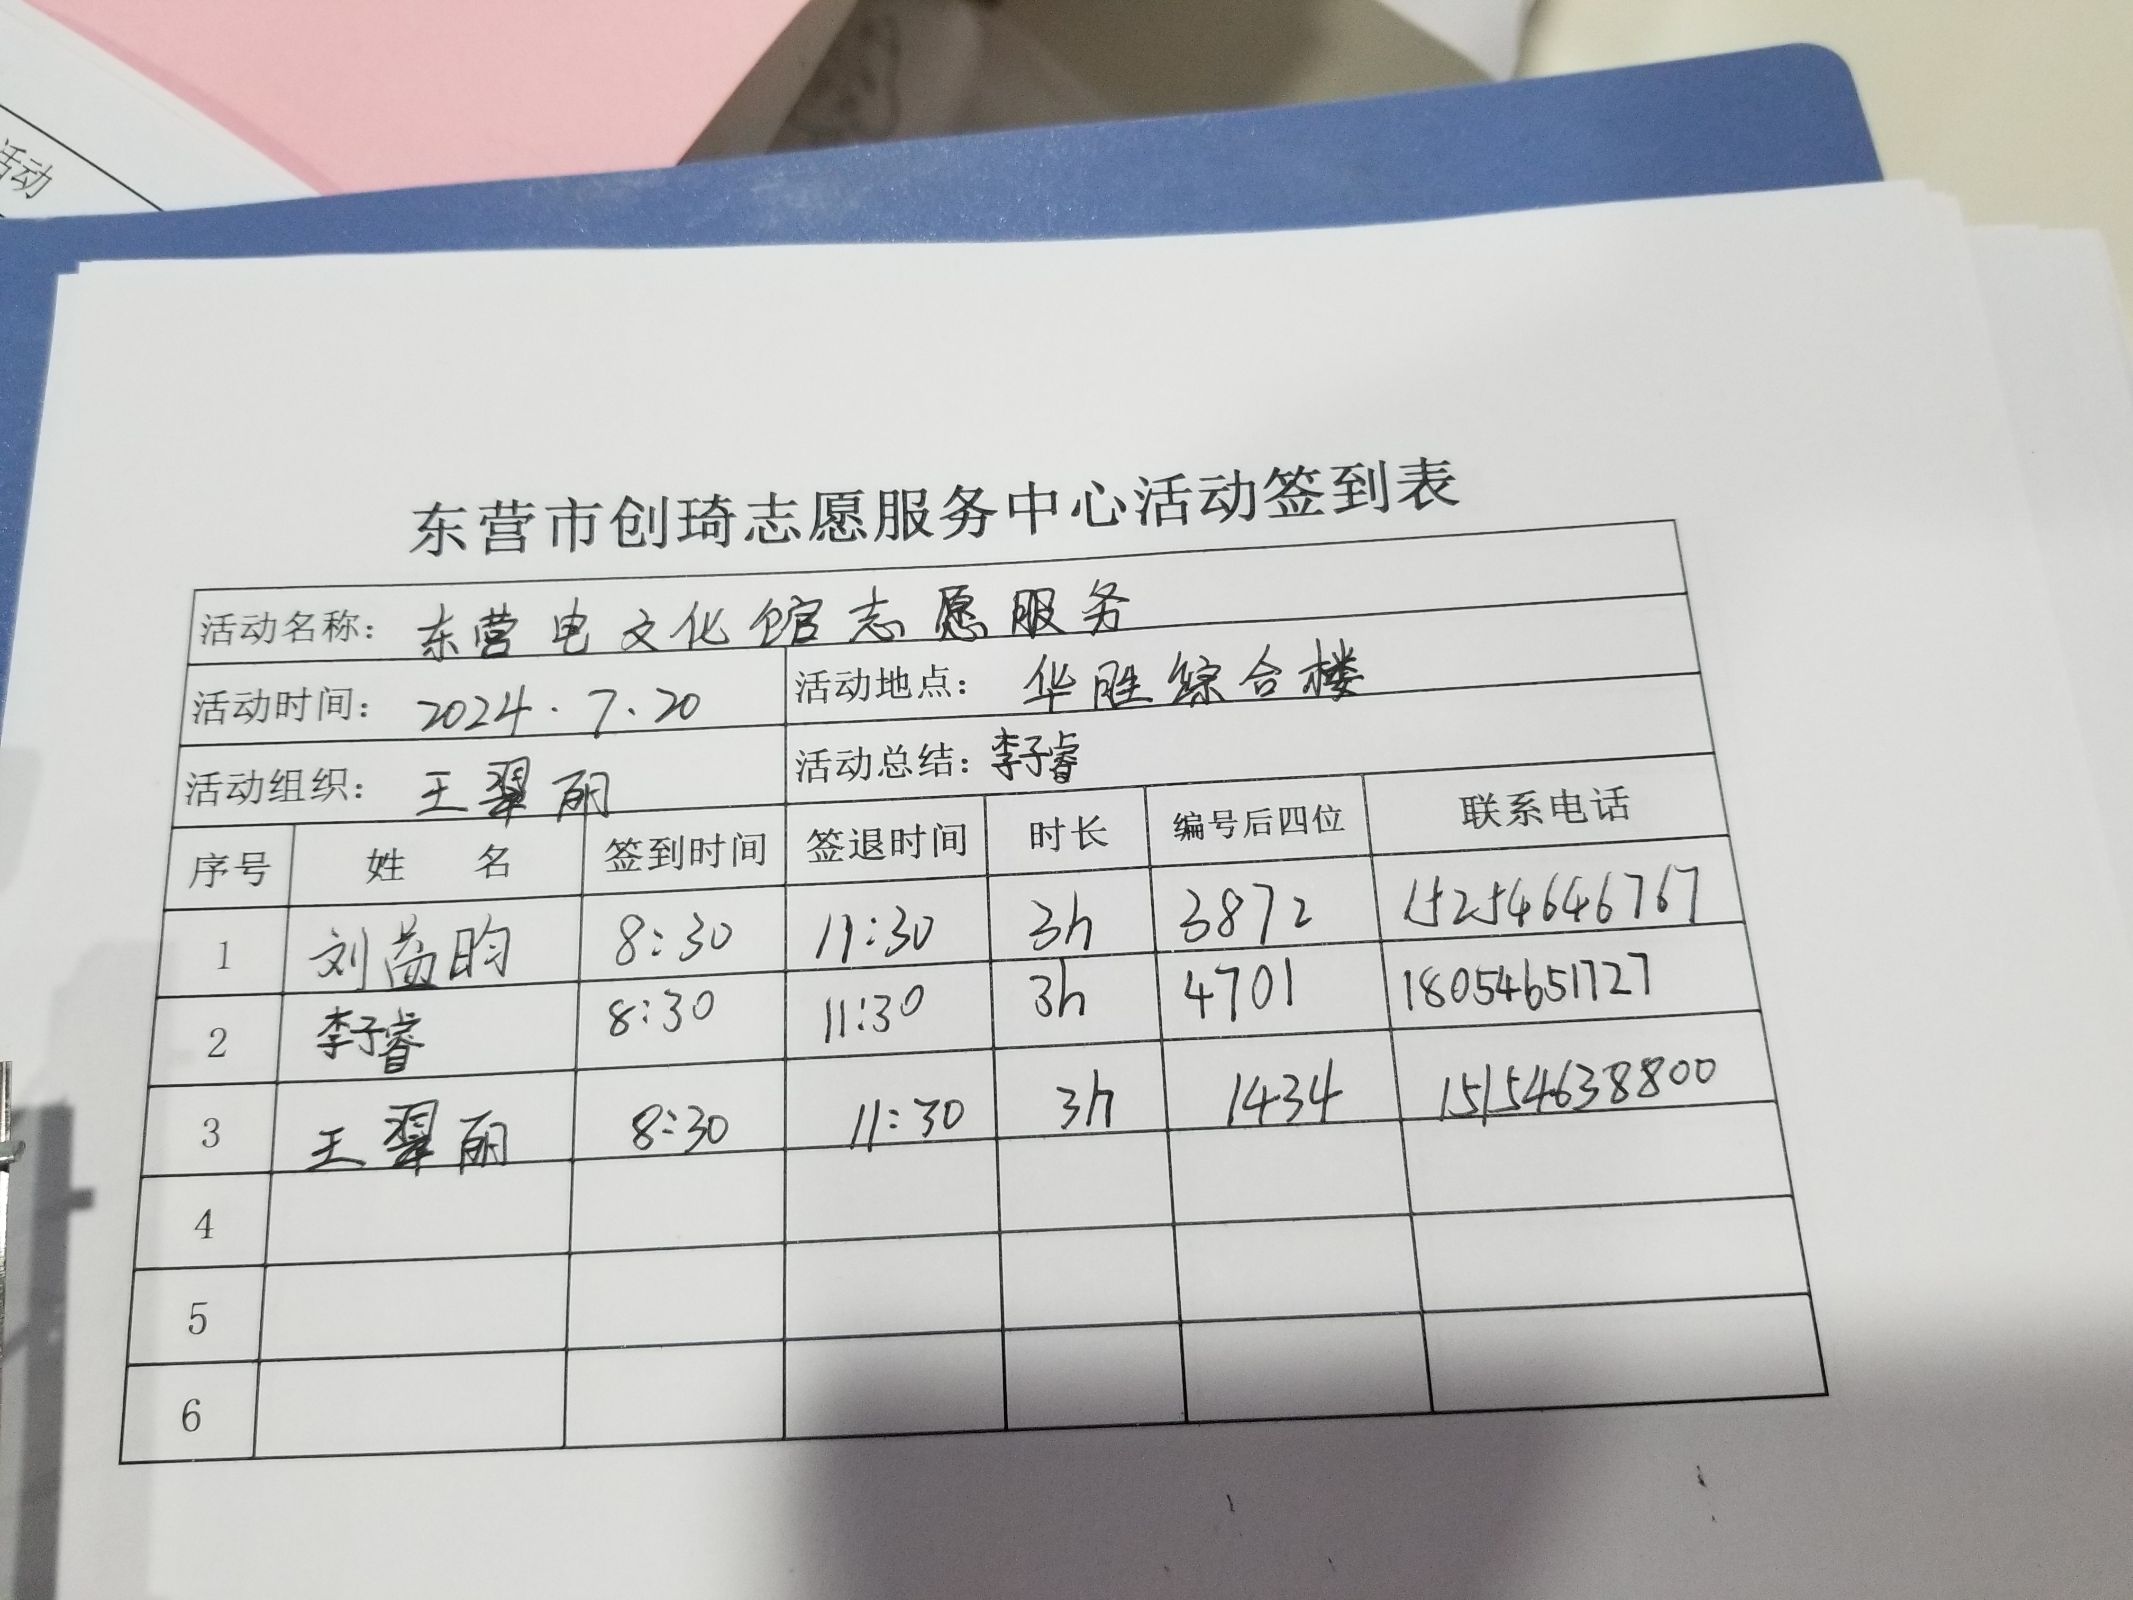 活动
东营市创琦志愿服务中心活动签到表
活动名称： 东营电文化馆志愿服务
活动时间： 2024.7.20 活动地点： 华胜综合楼
活动组织： 王翠丽 活动总结： 李子睿
序号 姓 名 签到时间 签退时间 时长 编号后四位 联系电话
1 刘益昀 8:30 11:30 3h 3872 15254646767
2 李子睿 8:30 11:30 3h 4701 18054651727
3 王翠丽 8:30 11:30 3h 1434 15154638800
4
5
6